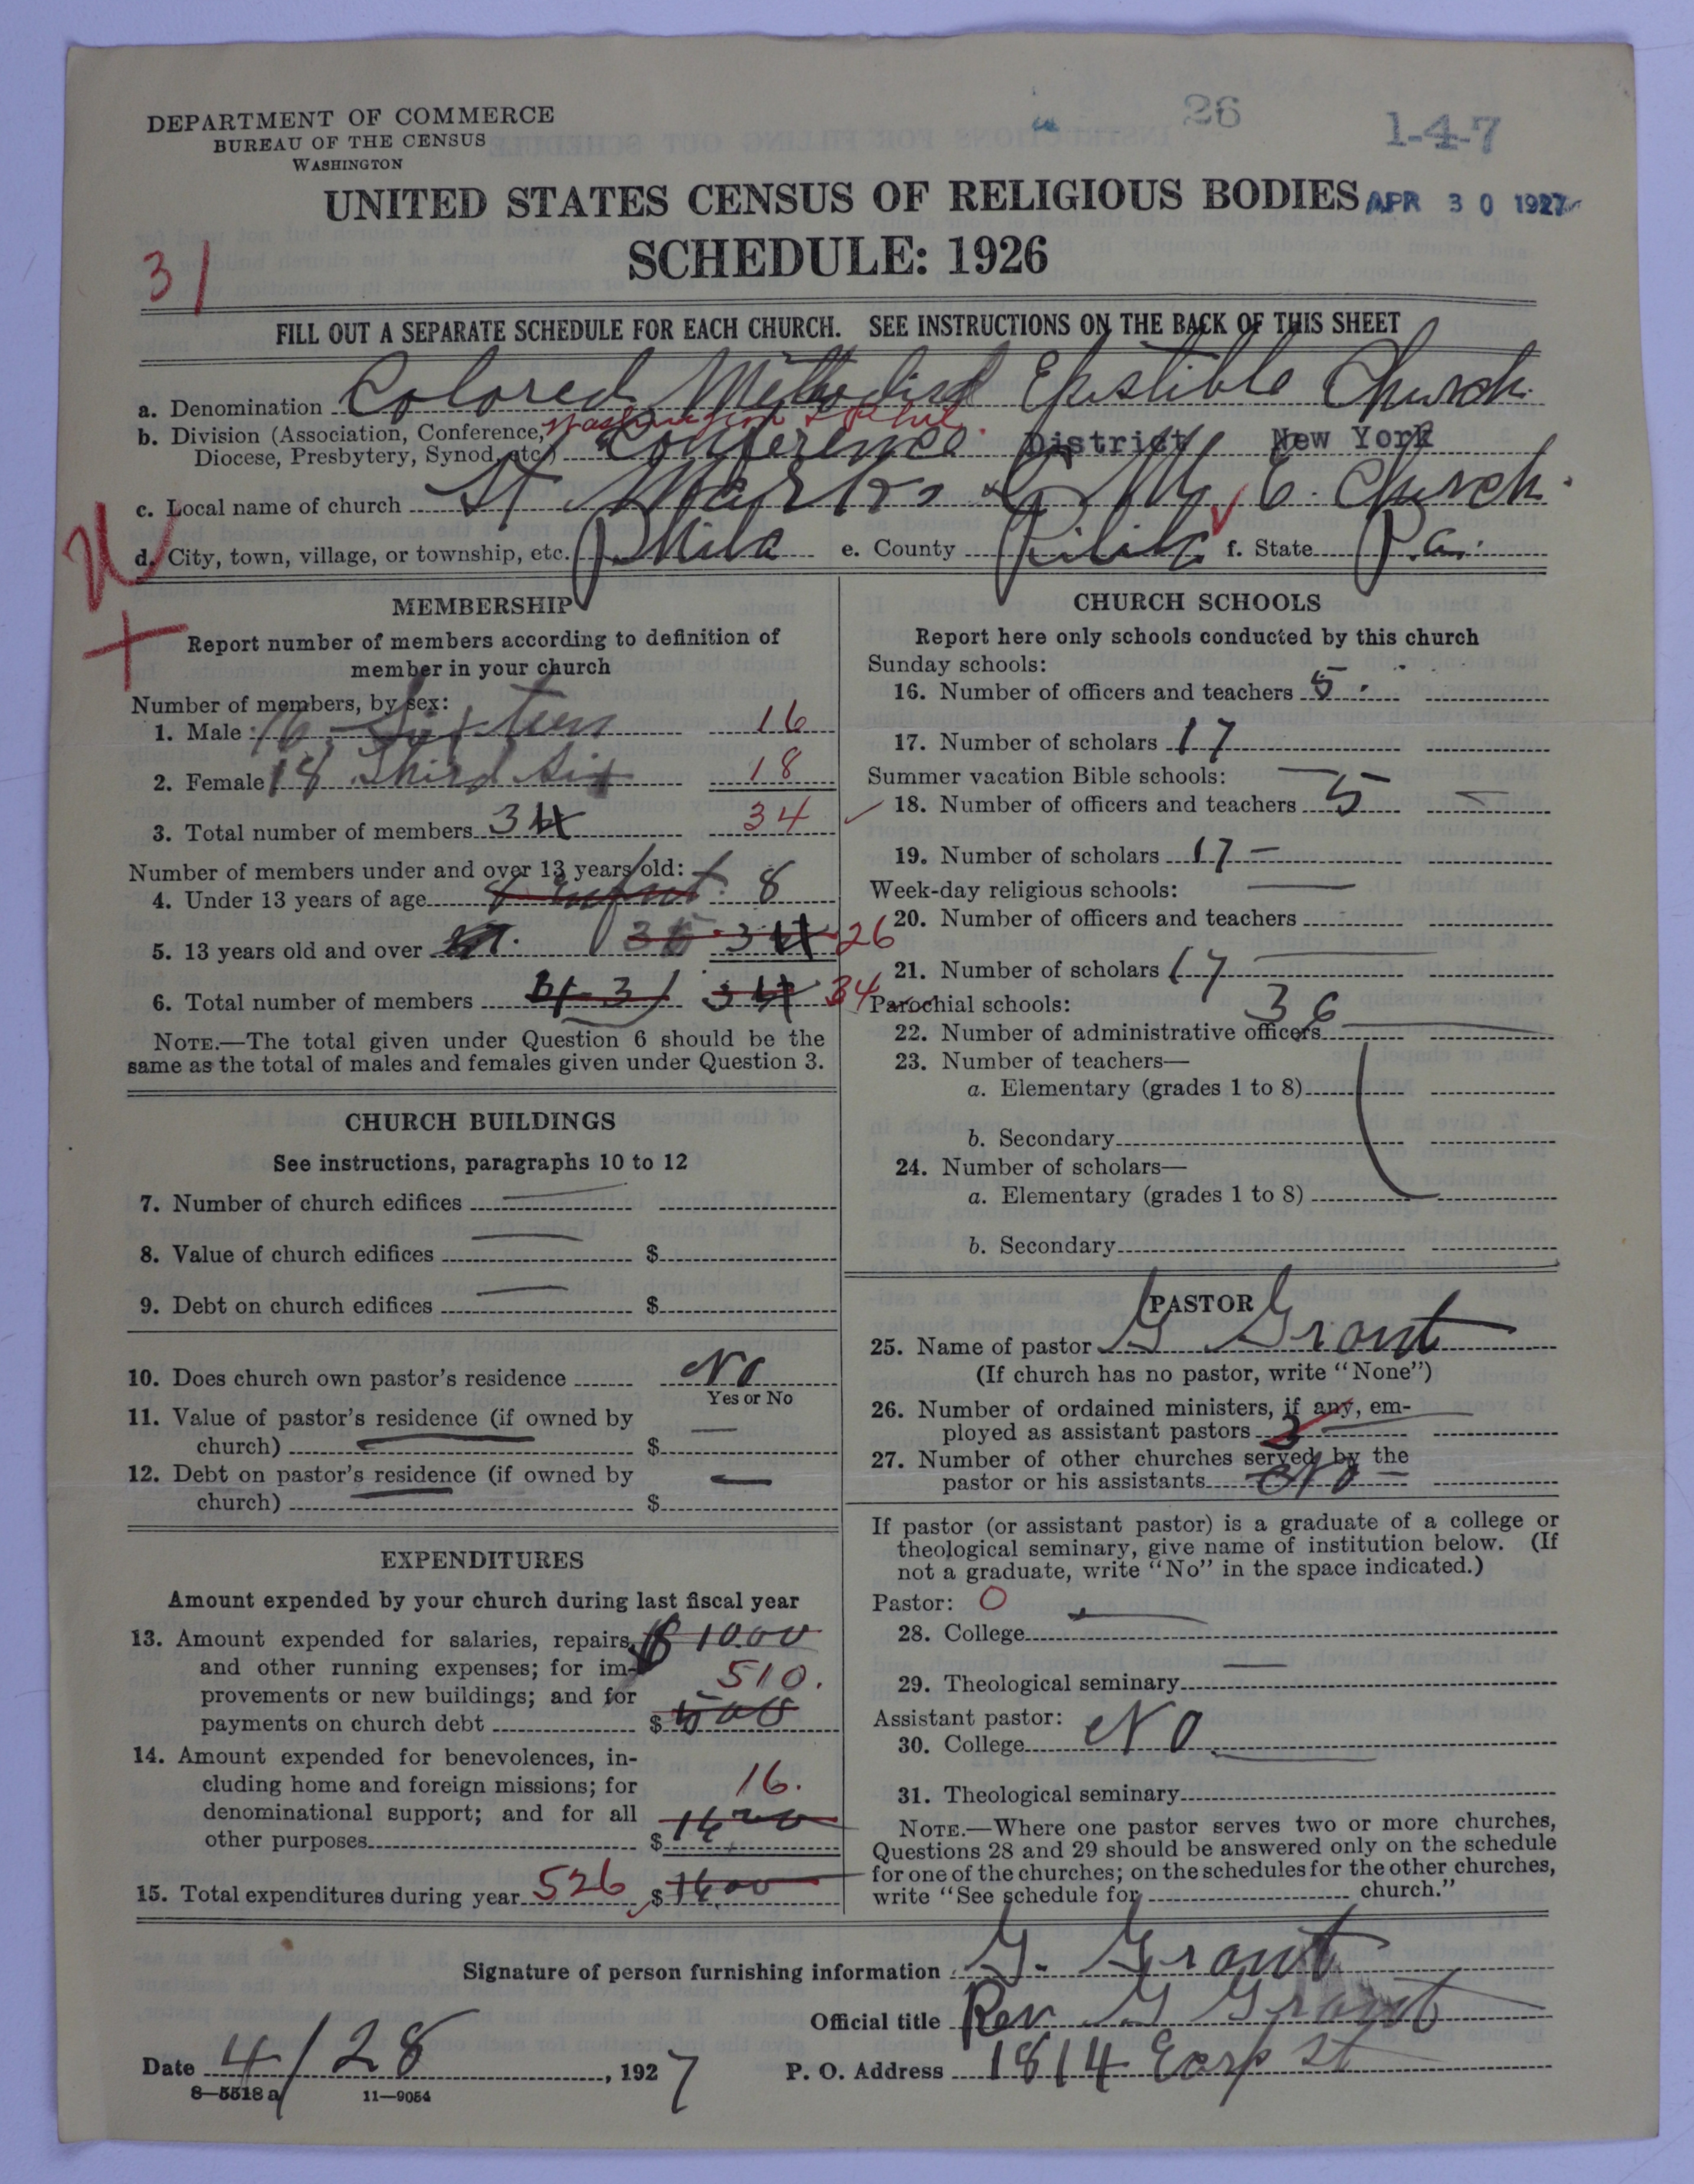 DEPARTMENT OF COMMERCE
BUREAU OF THE CENSUS
WASHINGTON
26
1-4-7
UNITED STATES CENSUS OF RELIGIOUS BODIES
APR 30 1927
SCHEDULE: 1926
31
FILL OUT A SEPARATE SCHEDULE FOR EACH CHURCH. SEE INSTRUCTIONS ON THE BACK OF THIS SHEET
a. Denomination Colored Methodist Epistible Church
b. Division (Association, Conference, Washington & Phil.
Diocese, Presbytery, Synod, etc.) Conference District New York
c. Local name of church St Marks C M E. Church.
d. City, town, village, or township, etc. Phila e. County Phila f. State Pa.
MEMBERSHIP
Report number of members according to definition of
member in your church
Number of members, by sex:
1. Male 16 Sixteen 16
2. Female 18 Third Six 18
3. Total number of members 34 34
Number of members under and over 13 years old:
4. Under 13 years of age 8 infant 8
5. 13 years old and over 36 34 26
6. Total number of members 31 34 34
NOTE.—The total given under Question 6 should be the
same as the total of males and females given under Question 3.
CHURCH BUILDINGS
See instructions, paragraphs 10 to 12
7. Number of church edifices —
8. Value of church edifices — $
9. Debt on church edifices — $
10. Does church own pastor's residence No
Yes or No
11. Value of pastor's residence (if owned by
church) $ —
12. Debt on pastor's residence (if owned by
church) $ —
EXPENDITURES
Amount expended by your church during last fiscal year
13. Amount expended for salaries, repairs, $ 10.00
and other running expenses; for im-
510.
provements or new buildings; and for
payments on church debt $ 500
14. Amount expended for benevolences, in-
cluding home and foreign missions; for 16.
denominational support; and for all
other purposes $ 1600
15. Total expenditures during year 526 $ 1600
CHURCH SCHOOLS
Report here only schools conducted by this church
Sunday schools:
16. Number of officers and teachers 5
17. Number of scholars 17
Summer vacation Bible schools: —
18. Number of officers and teachers 5 —
19. Number of scholars 17 —
Week-day religious schools: —
20. Number of officers and teachers
21. Number of scholars 17 —
Parochial schools: 36
22. Number of administrative officers —
23. Number of teachers—
a. Elementary (grades 1 to 8)
b. Secondary
24. Number of scholars—
a. Elementary (grades 1 to 8)
b. Secondary
PASTOR
25. Name of pastor G Grant
(If church has no pastor, write "None")
26. Number of ordained ministers, if any, em-
ployed as assistant pastors 3 —
27. Number of other churches served by the
pastor or his assistants No —
If pastor (or assistant pastor) is a graduate of a college or
theological seminary, give name of institution below. (If
not a graduate, write "No" in the space indicated.)
Pastor: O
28. College —
29. Theological seminary —
Assistant pastor:
30. College No
31. Theological seminary
NOTE.—Where one pastor serves two or more churches,
Questions 28 and 29 should be answered only on the schedule
for one of the churches; on the schedules for the other churches,
write "See schedule for church."
Signature of person furnishing information G. Grant
Official title Rev G Grant
Date 4/28, 1927 P. O. Address 1814 Earp St
8—5518 a 11—9054